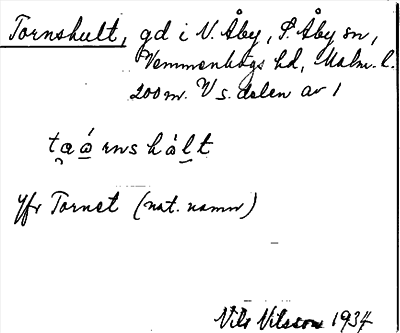 Tornshult, gd i V. Åby, S. Åby sn,
Vemmenhögs hd, Malm. l.
200 m. V s. delen av 1
tæǻrnshált
Jfr Tornet (nat. namn)
Nils Nilsson 1934